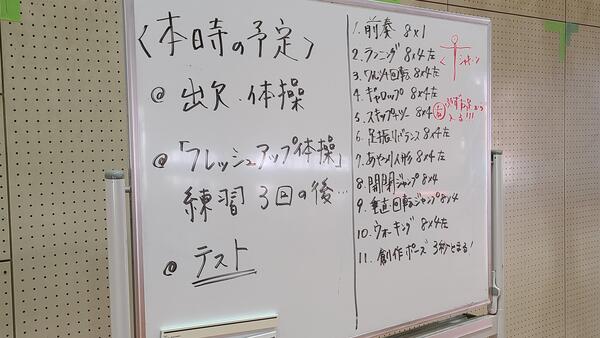 〈本時の予定〉
@ 出欠・体操
@ 「フレッシュアップ体操」
練習 3回の後…
@ テスト
1. 前奏 8×1
2. ランニング 8×4左
3. ワルツ回転 8×4左
4. ギャロップ 8×4左
5. スキップ・ツー 8×4
6. 足振りバランス 8×4左
7. あやつり人形 8×4左
8. 開閉ジャンプ 8×4
9. 垂直・回転ジャンプ 8×4
10. ウォーキング 8×4左
11. 創作ポーズ 3秒とまる!